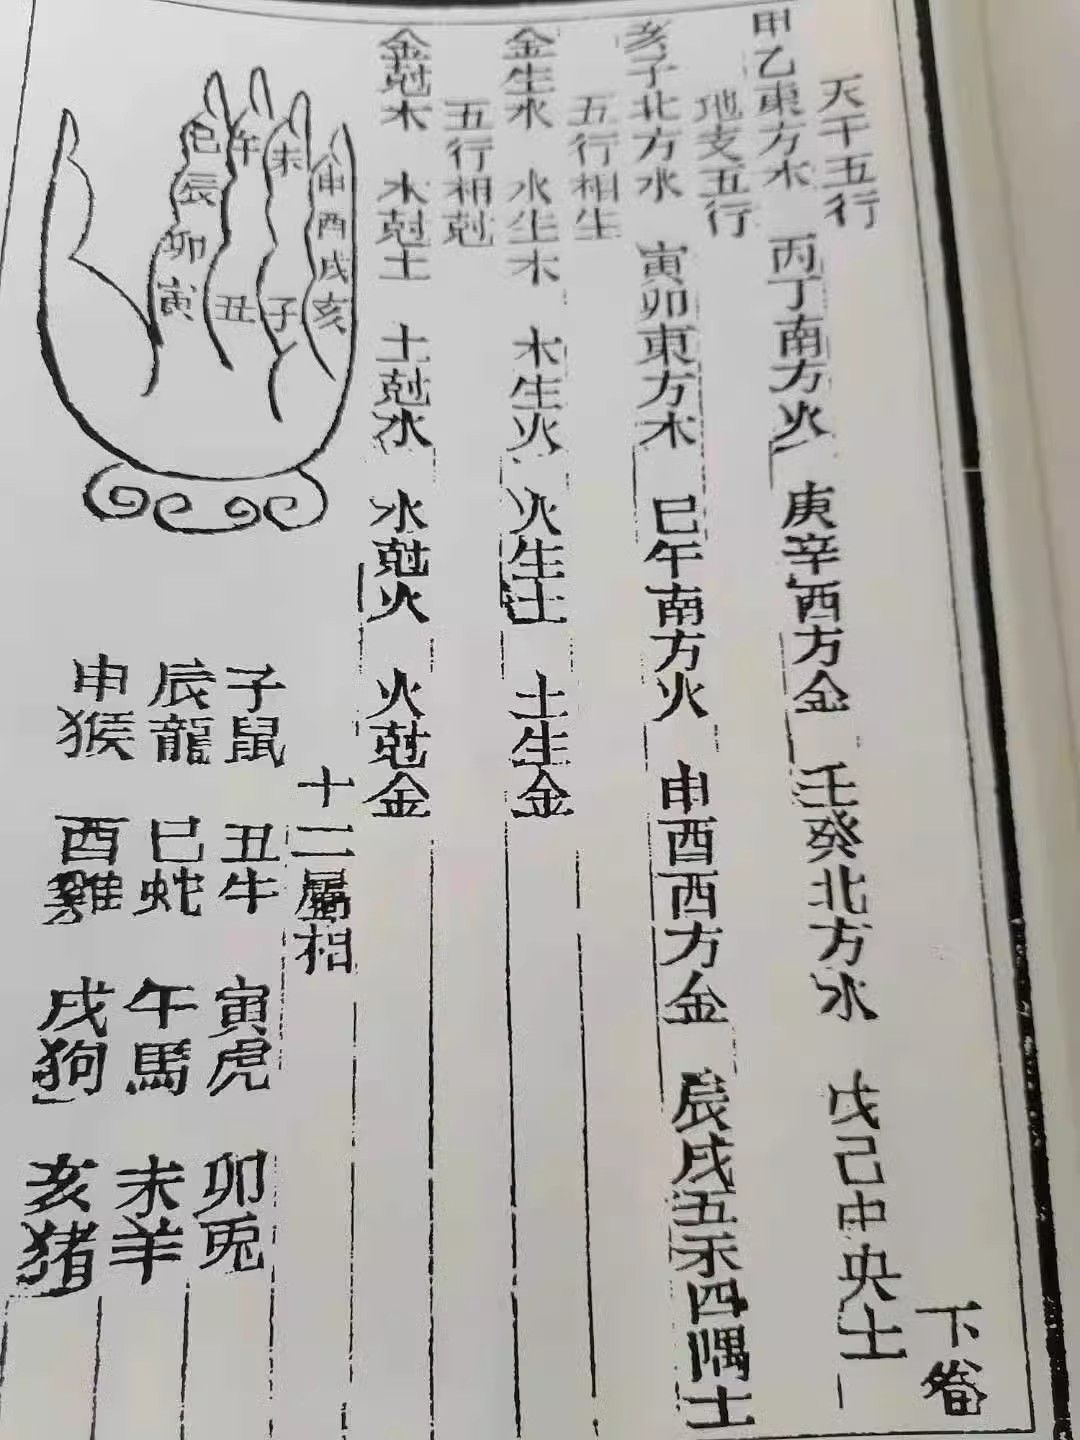 下卷
天干五行
甲乙東方木 丙丁南方火 庚辛西方金 壬癸北方水 戊己中央土
地支五行
亥子北方水 寅卯東方木 巳午南方火 申酉西方金 辰戌五禾四隅土
五行相生
金生水 水生木 木生火 火生土 土生金
五行相尅
金尅木 水尅土 土尅水 水尅火 火尅金
十二屬相
子鼠 丑牛 寅虎 卯兎
辰龍 巳蛇 午馬 未羊
申猴 酉雞 戌狗 亥猪
申酉戌亥
未子
午丑
巳辰卯寅